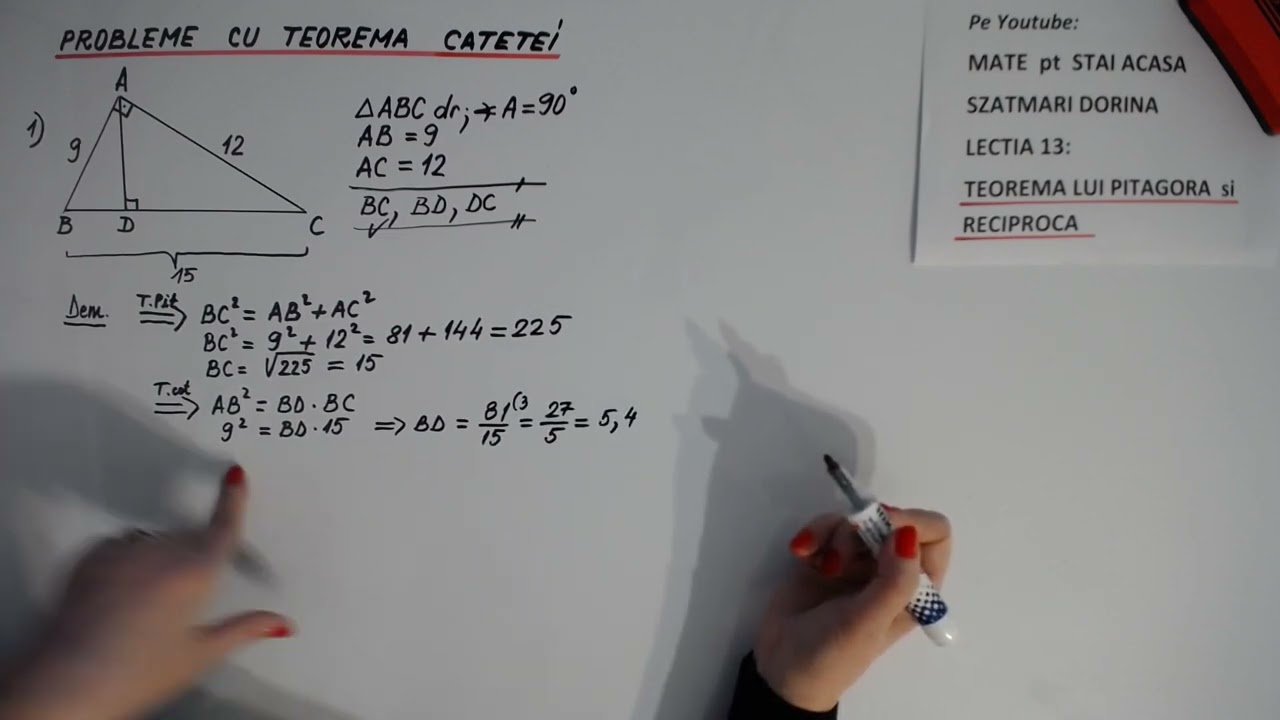 PROBLEME CU TEOREMA CATETEI
1)
A
9
12
B
D
C
15
△ABC dr; ∢A = 90°
AB = 9
AC = 12
BC, BD, DC
Dem. T.Pit ⟹ BC² = AB² + AC²
BC² = 9² + 12² = 81 + 144 = 225
BC = √225 = 15
T.cat ⟹ AB² = BD · BC
9² = BD · 15 ⟹ BD = 81/15 (3 = 27/5 = 5,4
Pe Youtube:
MATE pt STAI ACASA
SZATMARI DORINA
LECTIA 13:
TEOREMA LUI PITAGORA si
RECIPROCA